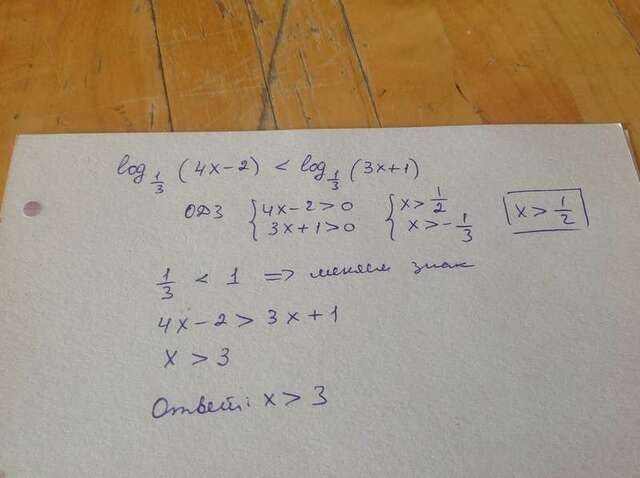 log 1/3 (4x-2) < log 1/3 (3x+1)
ОДЗ { 4x-2>0 { x>1/2 x>1/2
3x+1>0 x>-1/3
1/3 < 1 => меняем знак
4x-2 > 3x+1
x > 3
Ответ: x > 3